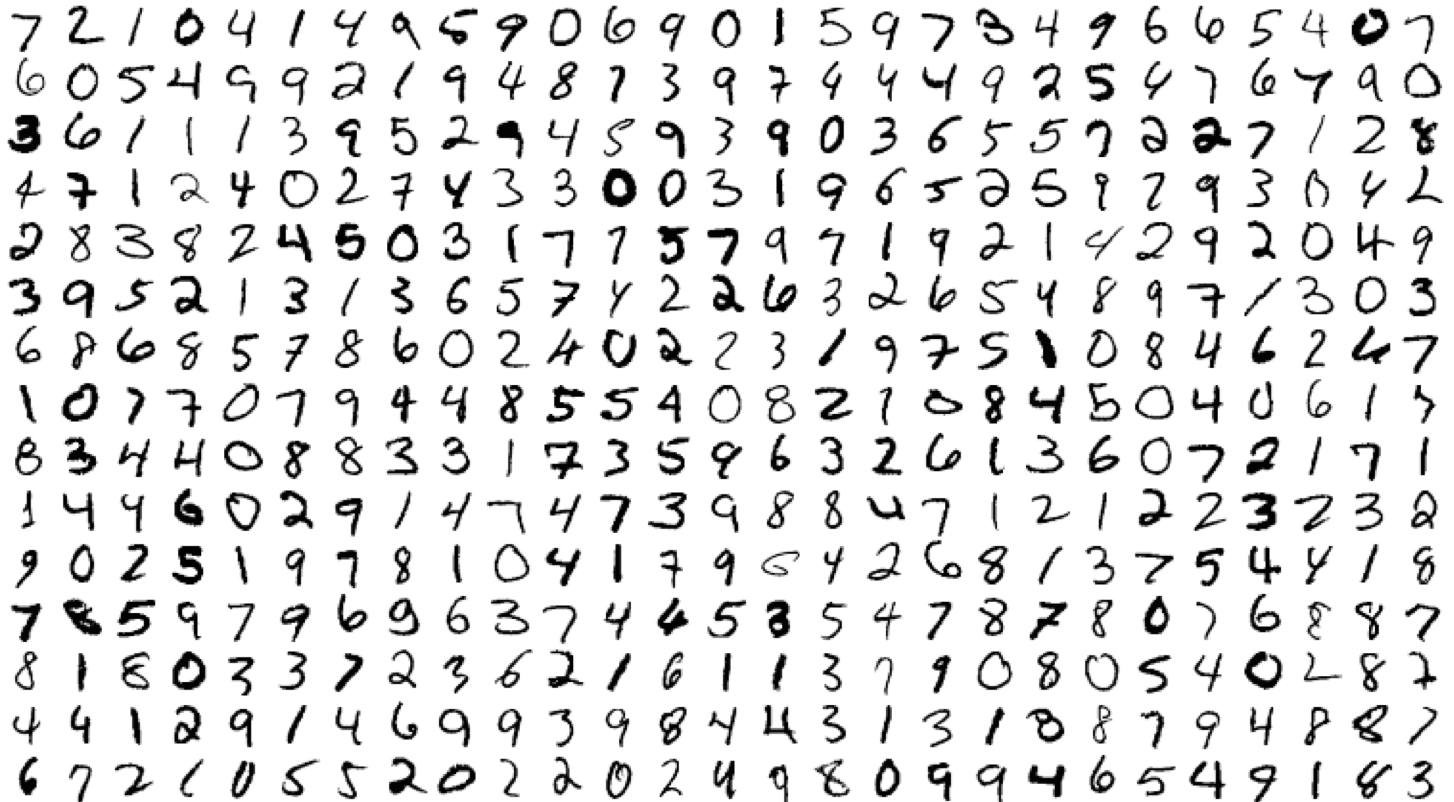 7 2 1 0 4 1 4 9 5 9 0 6 9 0 1 5 9 7 3 4 9 6 6 5 4 0 7
6 0 5 4 9 9 2 1 9 4 8 7 3 9 7 4 4 4 9 2 5 4 7 6 7 9 0
3 6 1 1 1 3 9 5 2 9 4 5 9 3 9 0 3 6 5 5 7 2 2 7 1 2 8
4 7 1 2 4 0 2 7 4 3 3 0 0 3 1 9 6 5 2 5 9 7 9 3 0 4 2
2 8 3 8 2 4 5 0 3 1 7 7 5 7 9 7 1 9 2 1 4 2 9 2 0 4 9
3 9 5 2 1 3 1 3 6 5 7 4 2 2 6 3 2 6 5 4 8 9 7 1 3 0 3
6 8 6 8 5 7 8 6 0 2 4 0 2 2 3 1 9 7 5 1 0 8 4 6 2 6 7
1 0 7 7 0 7 9 4 4 8 5 5 4 0 8 2 7 0 8 4 5 0 4 0 6 1 5
8 3 4 4 0 8 8 3 3 1 7 3 5 9 6 3 2 6 1 3 6 0 7 2 1 7 1
1 4 4 6 0 2 9 1 4 7 4 7 3 9 8 8 4 7 1 2 1 2 2 3 2 3 2
9 0 2 5 1 9 7 8 1 0 4 1 7 9 6 4 2 6 8 1 3 7 5 4 4 1 8
7 8 5 9 7 9 6 9 6 3 7 4 4 5 3 5 4 7 8 7 8 0 7 6 8 8 7
8 1 8 0 3 3 7 2 3 6 2 1 6 1 1 3 7 9 0 8 0 5 4 0 2 8 2
4 4 1 2 9 1 4 6 9 9 3 9 8 4 4 3 1 3 1 8 8 7 9 4 8 8 7
6 7 2 1 0 5 5 2 0 2 2 0 2 4 9 8 0 9 9 4 6 5 4 9 1 8 3